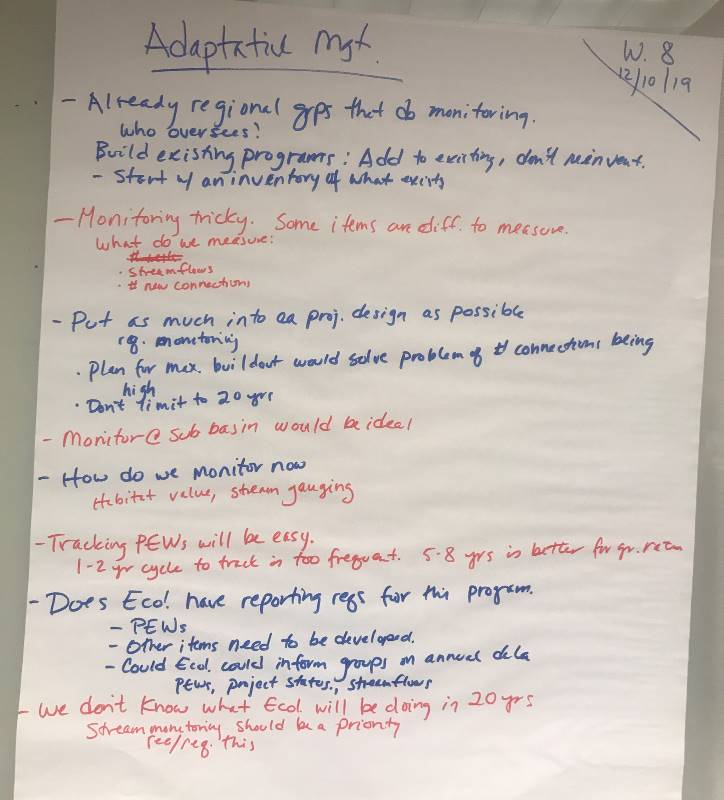 Adaptative Mgt.
W. 8
12/10/19
- Already regional grps that do monitoring.
Who oversees?
Build existing programs: Add to existing, don't reinvent.
- Start w/ an inventory of what exists
- Monitoring tricky. Some items are diff. to measure.
What do we measure:
· streamflows
· # new connections
- Put as much into ea proj. design as possible
rq. monitoring
· Plan for max. buildout would solve problem of # connections being
high
· Don't limit to 20 yrs
- Monitor @ sub basin would be ideal
- How do we monitor now
Habitat value, stream gauging
- Tracking PEWs will be easy.
1-2 yr cycle to track is too frequent. 5-8 yrs is better for gr.
- Does Ecol. have reporting reqs for this program.
- PEWs
- Other items need to be developed.
- Could Ecol. could inform groups on annual data
PEWs, project status., streamflows
- We don't know what Ecol. will be doing in 20 yrs
Stream monitoring should be a priority
rec/req. this